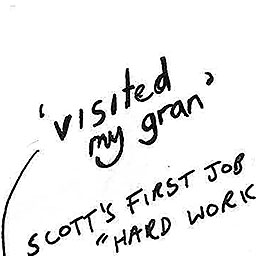 'visited
my gran'
SCOTT'S FIRST JOB
"HARD WORK